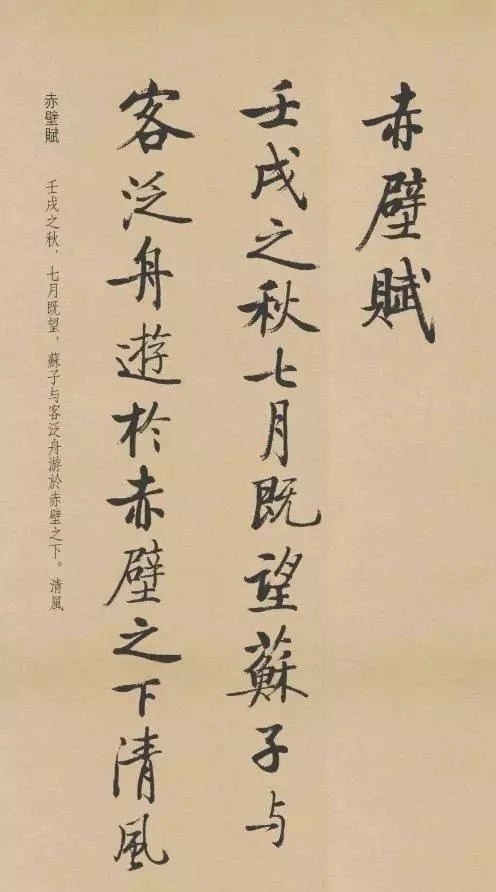 赤壁賦
壬戌之秋七月既望蘇子与
客泛舟遊於赤壁之下清風
赤壁賦　壬戌之秋，七月既望，蘇子与客泛舟游於赤壁之下。清風